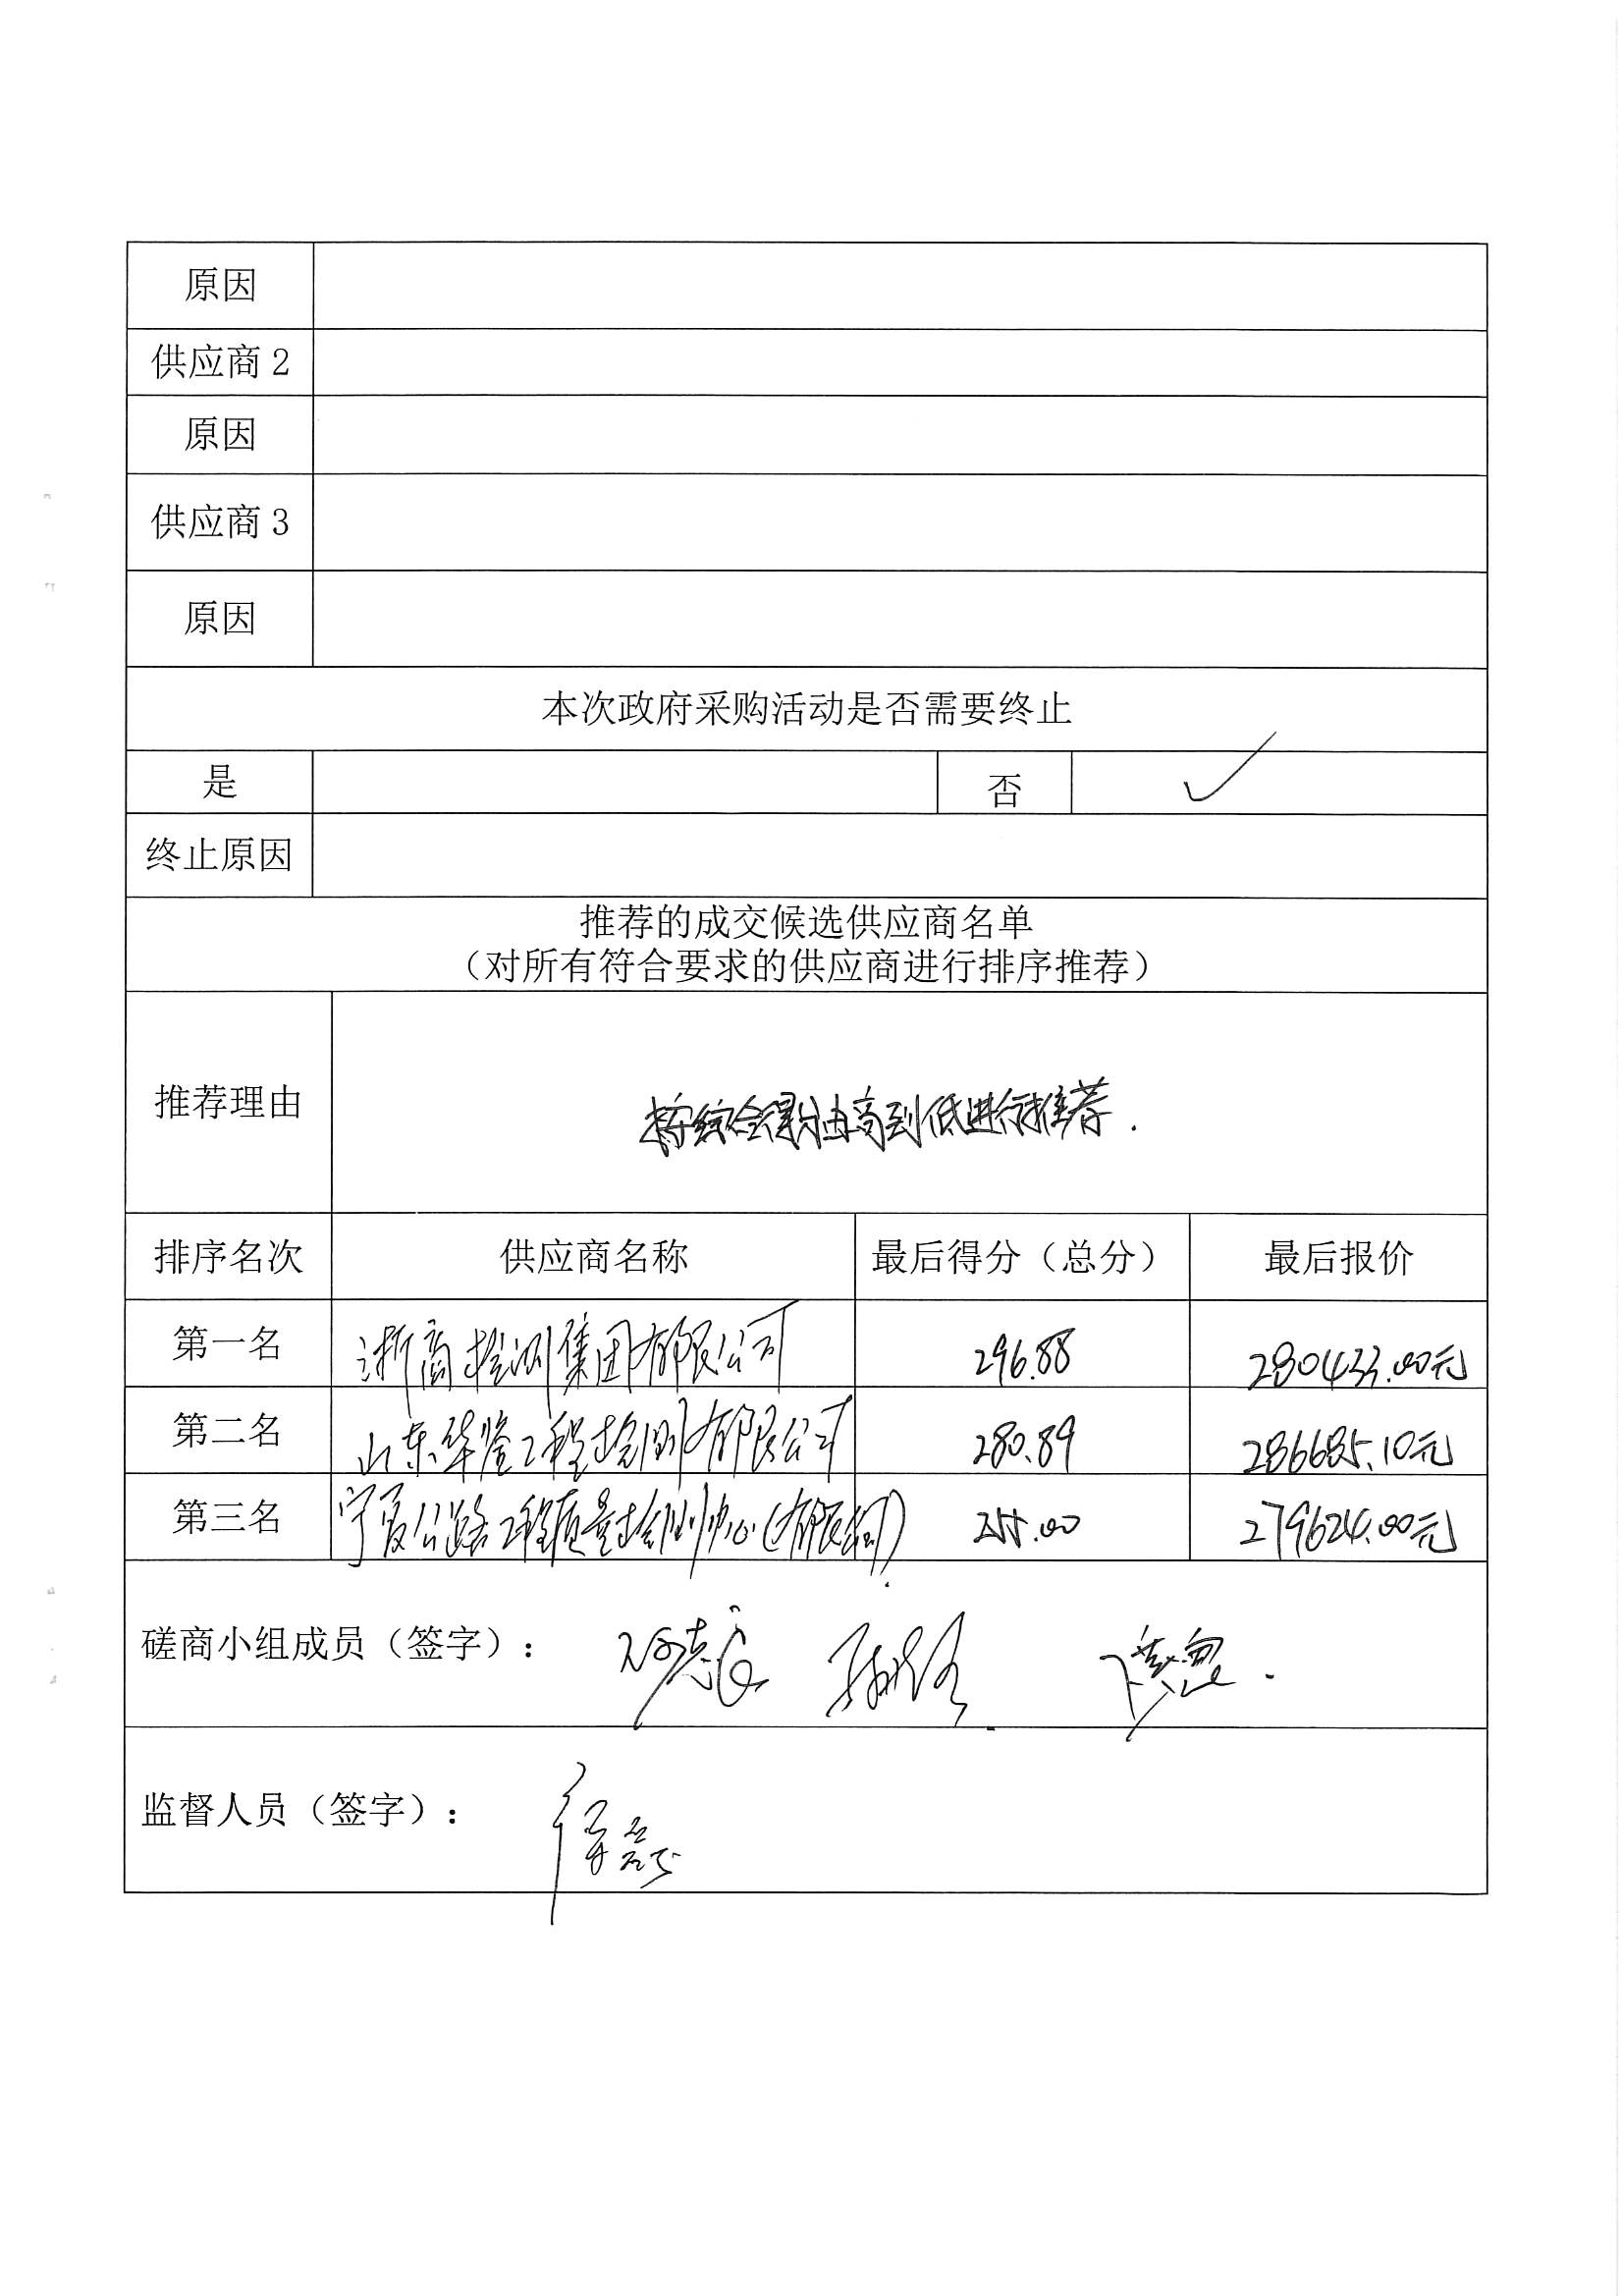 原因
供应商 2
原因
供应商 3
原因
本次政府采购活动是否需要终止
是 否 ✓
终止原因
推荐的成交候选供应商名单
（对所有符合要求的供应商进行排序推荐）
推荐理由 按综合得分由高到低进行推荐.
排序名次 供应商名称 最后得分（总分） 最后报价
第一名 浙商检测集团有限公司 296.88 280433.00元
第二名 山东华鉴工程检测有限公司 280.89 286685.10元
第三名 宁夏公路工程质量检测中心(有限公司) 255.00 279624.00元
磋商小组成员（签字）：
监督人员（签字）：